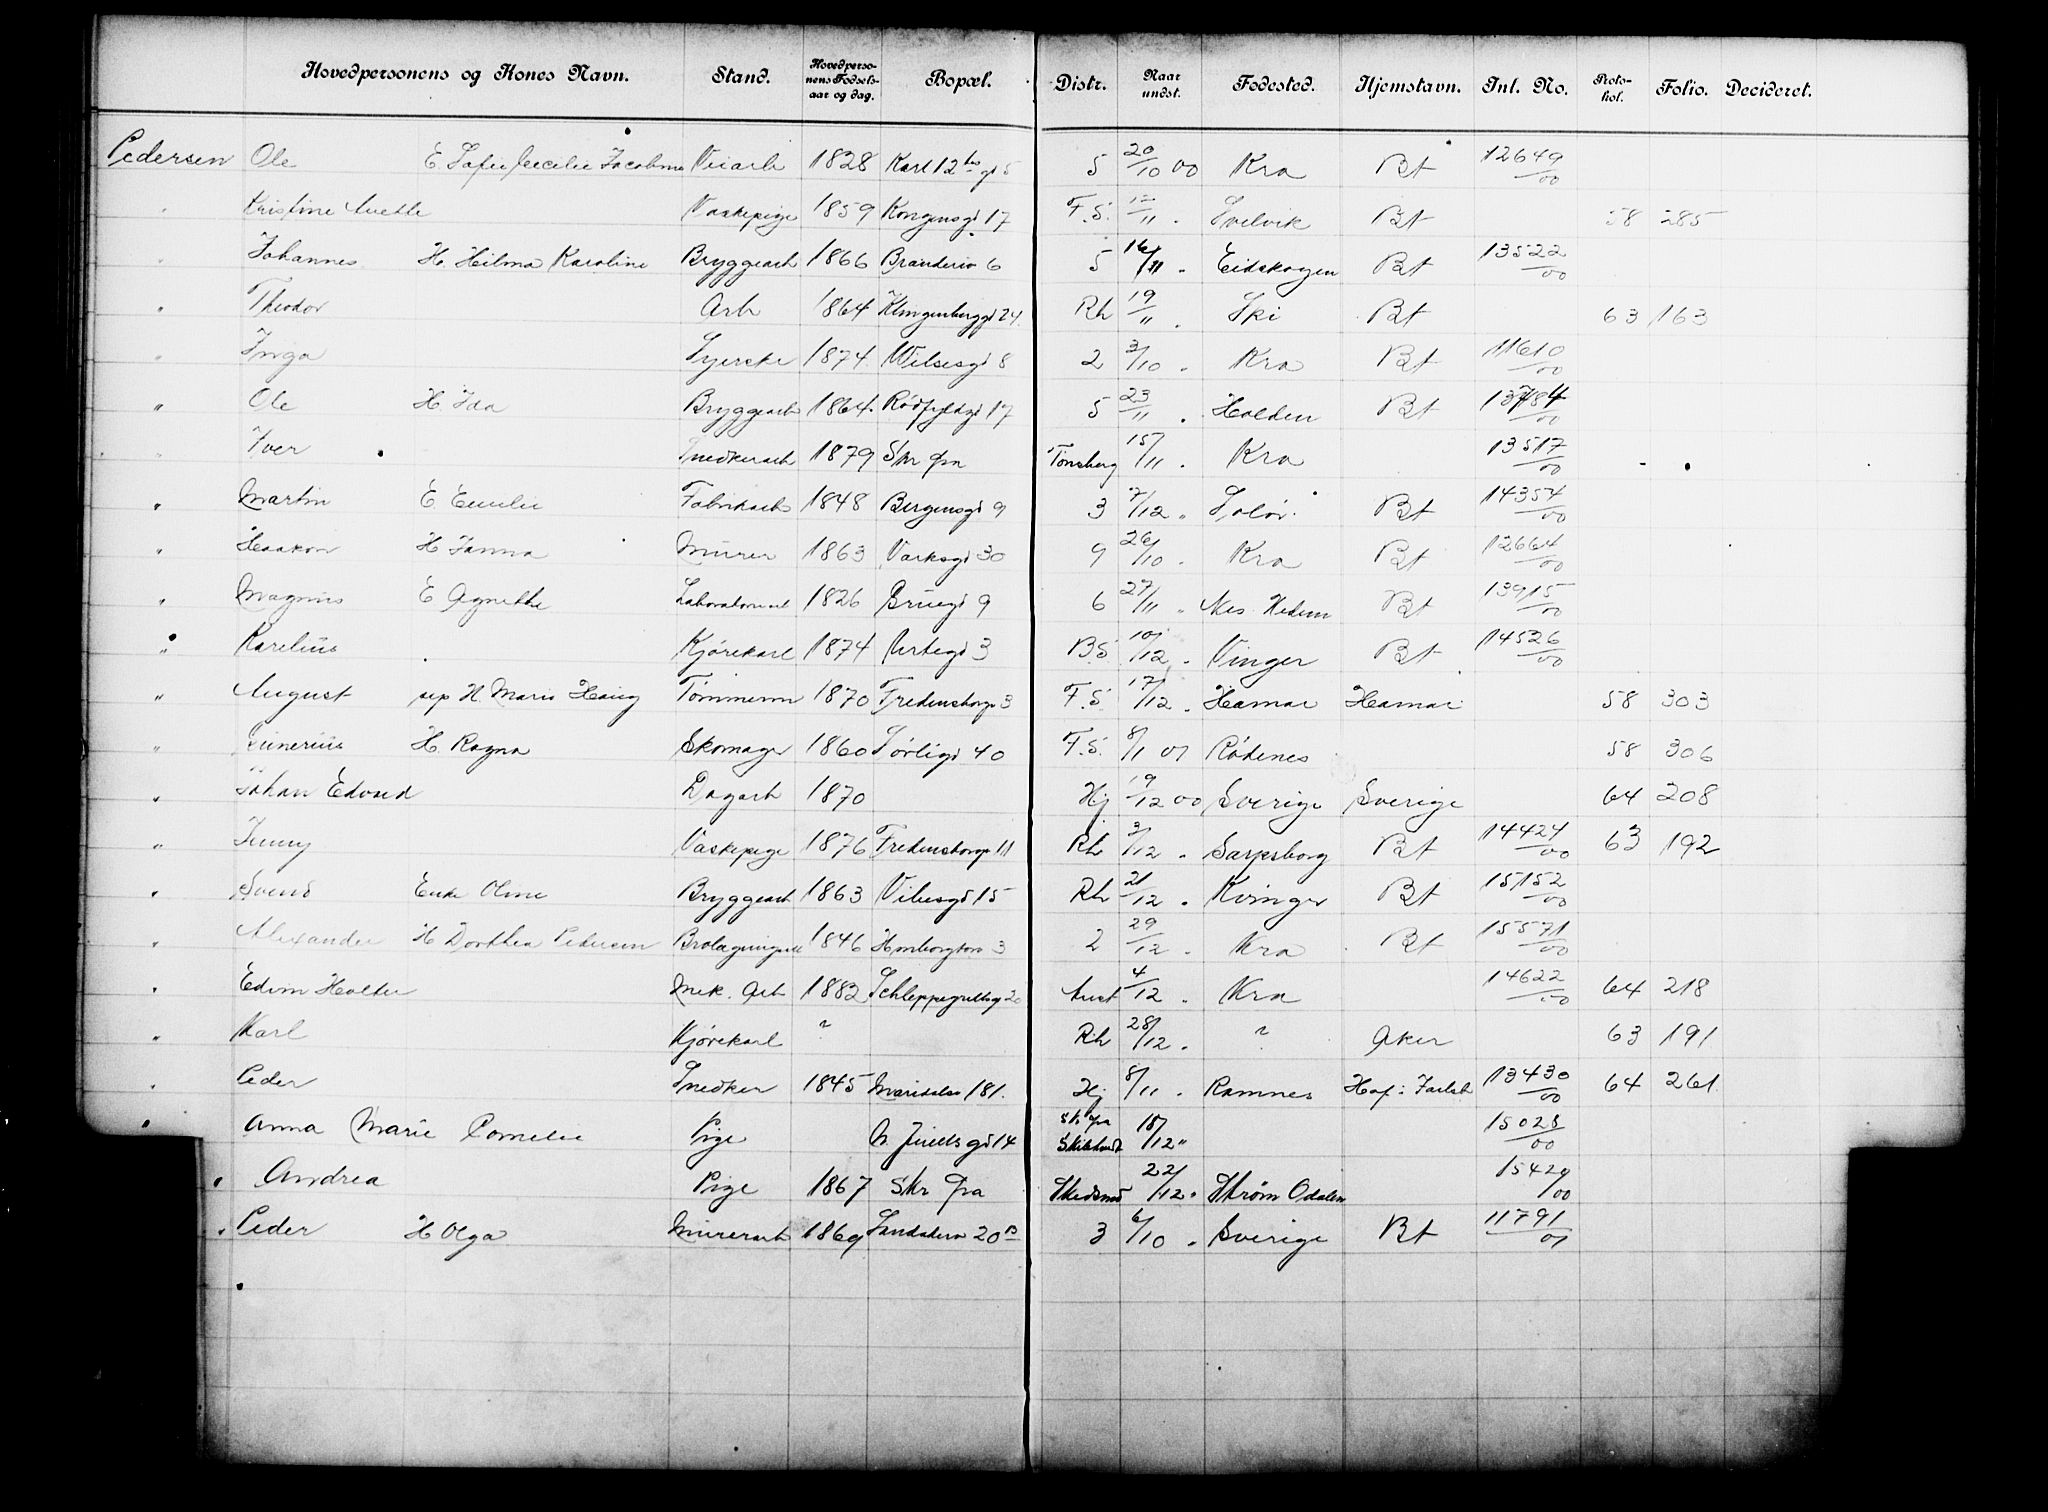 Hovedpersonens og Kones Navn. Stand. Hovedperso-nens Fødsels-aar og dag. Bopæl. Distr. Naar undst. Fødested. Hjemstavn. Int. No. Proto-kol. Folio. Decideret.
Pedersen Ole E. Sofie Cecilie Jacobsen Veiarb 1828 Karl 12 tes gd 5 5 20/10 00 Kra Bt 12649/00
" Kristine Anette Vaskepige 1859 Kongensgd 17 F.S. 12/11 " Svelvik Bt 58 285
" Johannes H. Hilma Karoline Bryggearb 1866 Branderiv 6 5 16/11 " Eidskogen Bt 13522/00
" Theodor Arb 1864 Klingenberggd 24 Rh 19/11 " Ski Bt 63 163
" Inga Syerske 1874 Wilsesgd 8 2 3/10 " Kra Bt 11610/00
" Ole H. Ida Bryggearb 1864 Rødfyldgd 17 5 23/11 " Holden Bt
" Iver Snedkerarb 1879 Skr fra Tønsberg 15/11 " Kra 13517/00
" Martin E. Emilie Fabrikarb 1848 Bergensgd 9 3 7/12 " Solør Bt 14354/00
" Haakon H. Janna Murer 1863 Varksgd 30 9 26/10 " Kra Bt 12664/00
" Magnus E Agnethe 1826 Bruegd 9 6 27/11 " Nes Hedem Bt 13915/00
" Karelius Kjørekarl 1874 Urtegd 3 B.S 10/12 " Vinger Bt 14526/00
" August sep H. Maria Haug Tømmerm 1870 Fredensborgv 3 F.S. 17/12 " Hamar Hamar 58 303
" H. Ragna Skomager 1860 Sørligd 40 F.S. 8/1 01 Rødenes 58 306
" Johan Edvard Dagarb 1870 Hj 19/12 00 Sverige Sverige 64 208
" Jenny Vaskepige 1876 Fredensborgv 11 Rh 3/12 " Sarpsborg Bt 14424/00 63 192
" Svend Enke Oline Bryggearb 1863 Vibesgd 15 Rh 21/12 " Kvinger Bt 15152/00
" Alexander H Dorthea Pedersen 1846 3 2 29/12 " Kra Bt 15571/00
" Edvin Halter Mek. Arb 1882 Schleppegrellsg 20 Aust 4/12 " Kra 14622/00 64 218
" Karl Kjørekarl ? Rh 28/12 " ? Aker 63 191
" Peder Snedker 1845 Maridalsv 181. Hj 8/11 " Ramnes Hof i Jarlsb 13430/00 64 261
" Anna Marie Cornelie Pige N. Juelsgd 14 Skr fra 18/12 " 15028/00
" Andrea Pige 1867 Skr fra Skedsmo 22/12 " Strøm Odalen 15429/00
" Peder H Olga Murerarb 1869 20 B 3 6/10 " Sverige Bt 11791/01